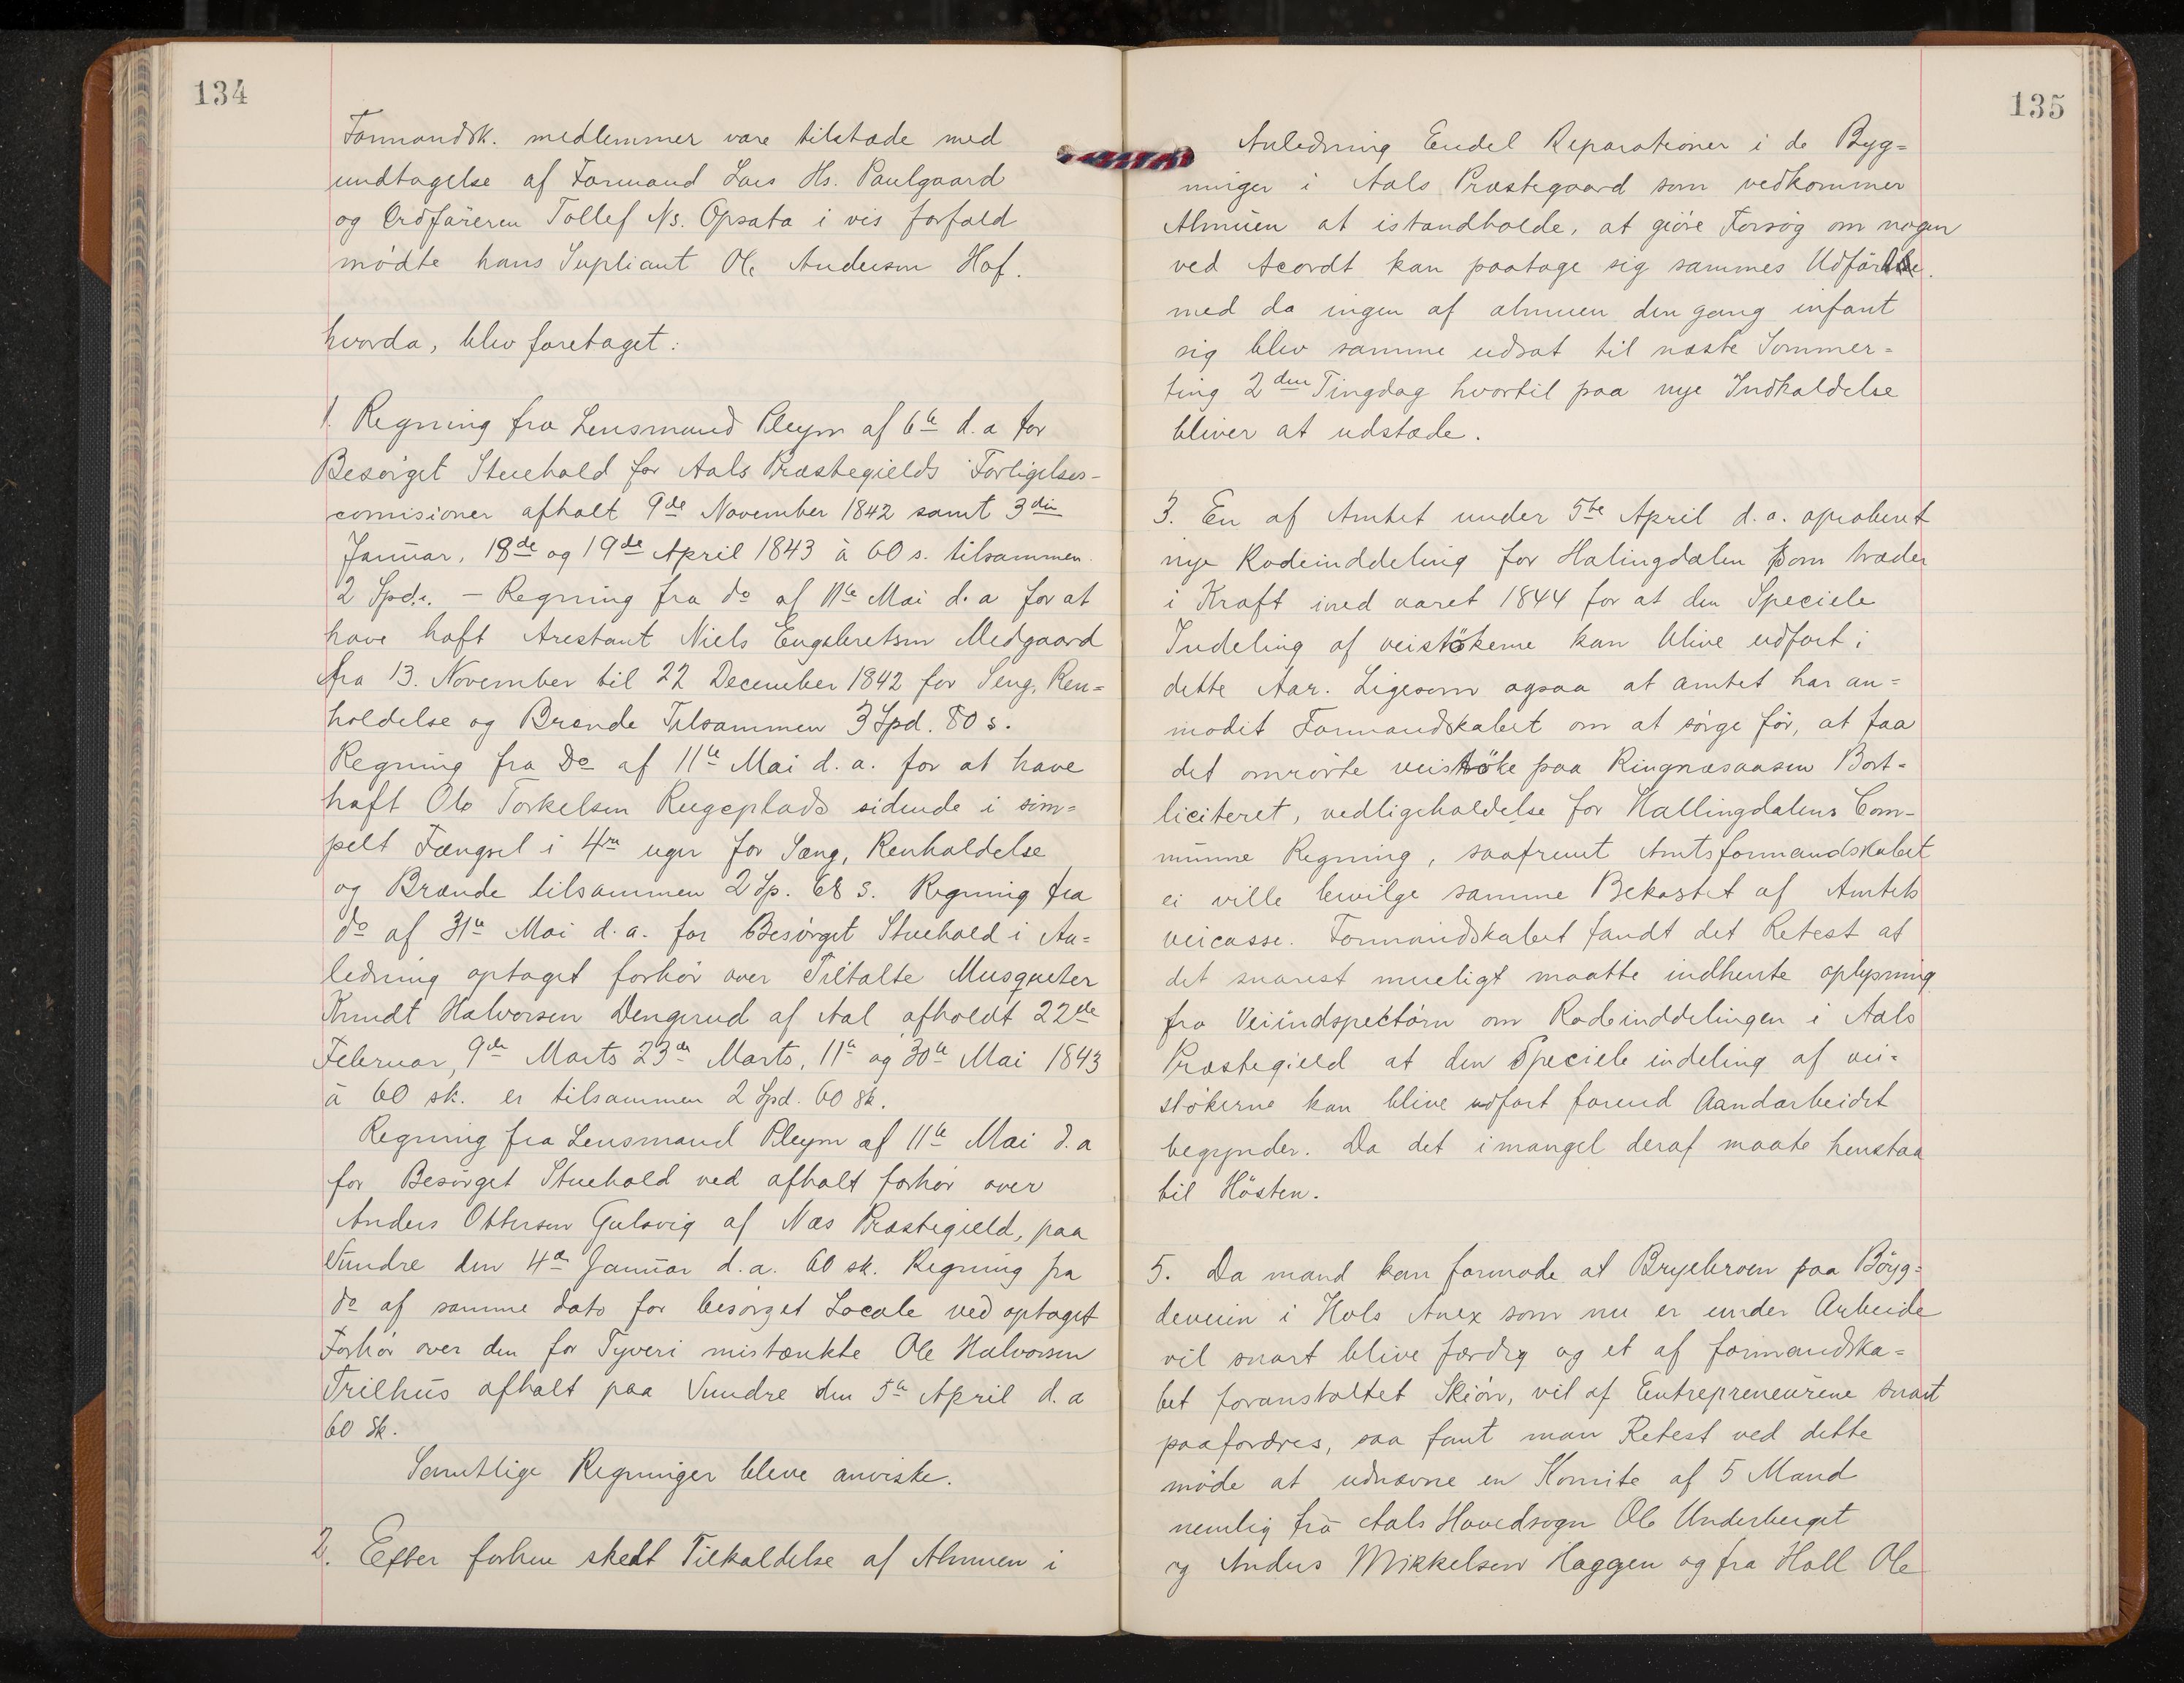 134
Formandsk. medlemmer vare tilstæde med
undtagelse af Formand Lars Hs. Paulgaard
og Ordføreren Tollef Ns. Opsata i vis forfald
mödte hans Supliant Ole Andersen Hof.
hvorda, blev foretaget:
1. Regning fra Lensmand Pleym af 6te d.a for
Besörget Stuehold for Aals Præstegields Forligelses-
comisioner afholt 9de November 1842 samt 3die
Januar, 18de og 19de April 1843 à 60 s. tilsammen
2 Spd. – Regning fra do af 11te Mai d.a for at
have haft Arestant Niels Engebretsen Medgaard
fra 13. November til 22 December 1842 for Seng, Ren=
holdelse og Brænde Tilsammen 3 Spd. 80 s.
Regning fra Do af 11te Mai d.a. for at have
haft Ole Torkelsen Rugeplads sidende i sim=
pelt Fængsel i 4re uger for Sæng, Renholdelse
og Brænde tilsammen 2 Sp. 68 s. Regning fra
do af 31te Mai d.a. for Besörget Stuehold i An=
ledning optaget forhör over Tiltalte Musqueter
Knudt Halvorsen Dengerud af Aal afholdt 22de
Februar, 9de Marts 23de Marts, 11te og 30te Mai 1843
à 60 sk. er tilsammen 2 Spd. 60 sk.
Regning fra Lensmand Pleym af 11te Mai d.a
for Besörget Stuehold ved afholt forhör over
Anders Ottersen Gulsvig af Næs Præstegield, paa
Sundre den 4de Januar d.a. 60 sk. Regning fra
do af samme dato for besörget Locale ved optaget
Forhör over den for Tyveri mistænkte Ole Halvorsen
Trilhus afholt paa Sundre den 5te April d.a
60 sk.
Samtlige Regninger bleve anviste.
2. Efter forhen skedt Tilkaldelse af Almuen i
135
Anledning Endel Reparationer i de Byg=
ninger i Aals Præstegaard som vedkommer
Almuen at istandholde, at giöre Forsög om nogen
ved Acordt kan paatage sig sammes Udförelse.
med da ingen af almuen den gang infant
sig blev samme udsat til næste Sommer=
ting 2den Tingdag hvortil paa nye Indkaldelse
bliver at udstæde.
3. En af Amtet under 5te April d.a. aproberet
nye Rodeinddeling for Halingdalen som træder
i Kraft ined aaret 1844 for at den Speciele
Indeling af veistökerne kan blive udfört i
dette Aar. Ligesom ogsaa at amtet har an=
modet Formandskabet om at sörge för, at faa
det omrörte veistöke paa Ringnæsaasen Bort=
liciteret, vedligeholdelse for Hallingdalens Com-
mune Regning, saafremt Amtsformandskabet
ei ville bevilge samme Bekostet af Amtets
veicasse. Formandskabet fandt det Retest at
det snarest mueligt maatte indhente oplysning
fra Veiindspectörn om Rodeinddelingen i Aals
Præstegield at den Speciele indeling af vei=
stökerne kan blive udfört forend Aandarbeidet
begynder. Da det imangel deraf maate henstaa
til Hösten.
5. Da mand kan formode at Bryebroen paa Böyg=
deveien i Hols Anex som nu er under Arbeide
vil snart blive færdig og et af formandska=
bet foranstaltet Skiön, vil af Entrepreneurene snart
paafordres, saa fant man Retest ved dette
möde at udnævne en Komite af 5 Mand
nemlig fra Aals Hovedsogn Ole Underberget
og Anders Mikkelsen Haggen og fra Holl Ole